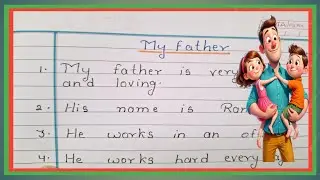 My father
1. My father is very
and loving.
2. His name is
3. He works in an
4. He works hard every